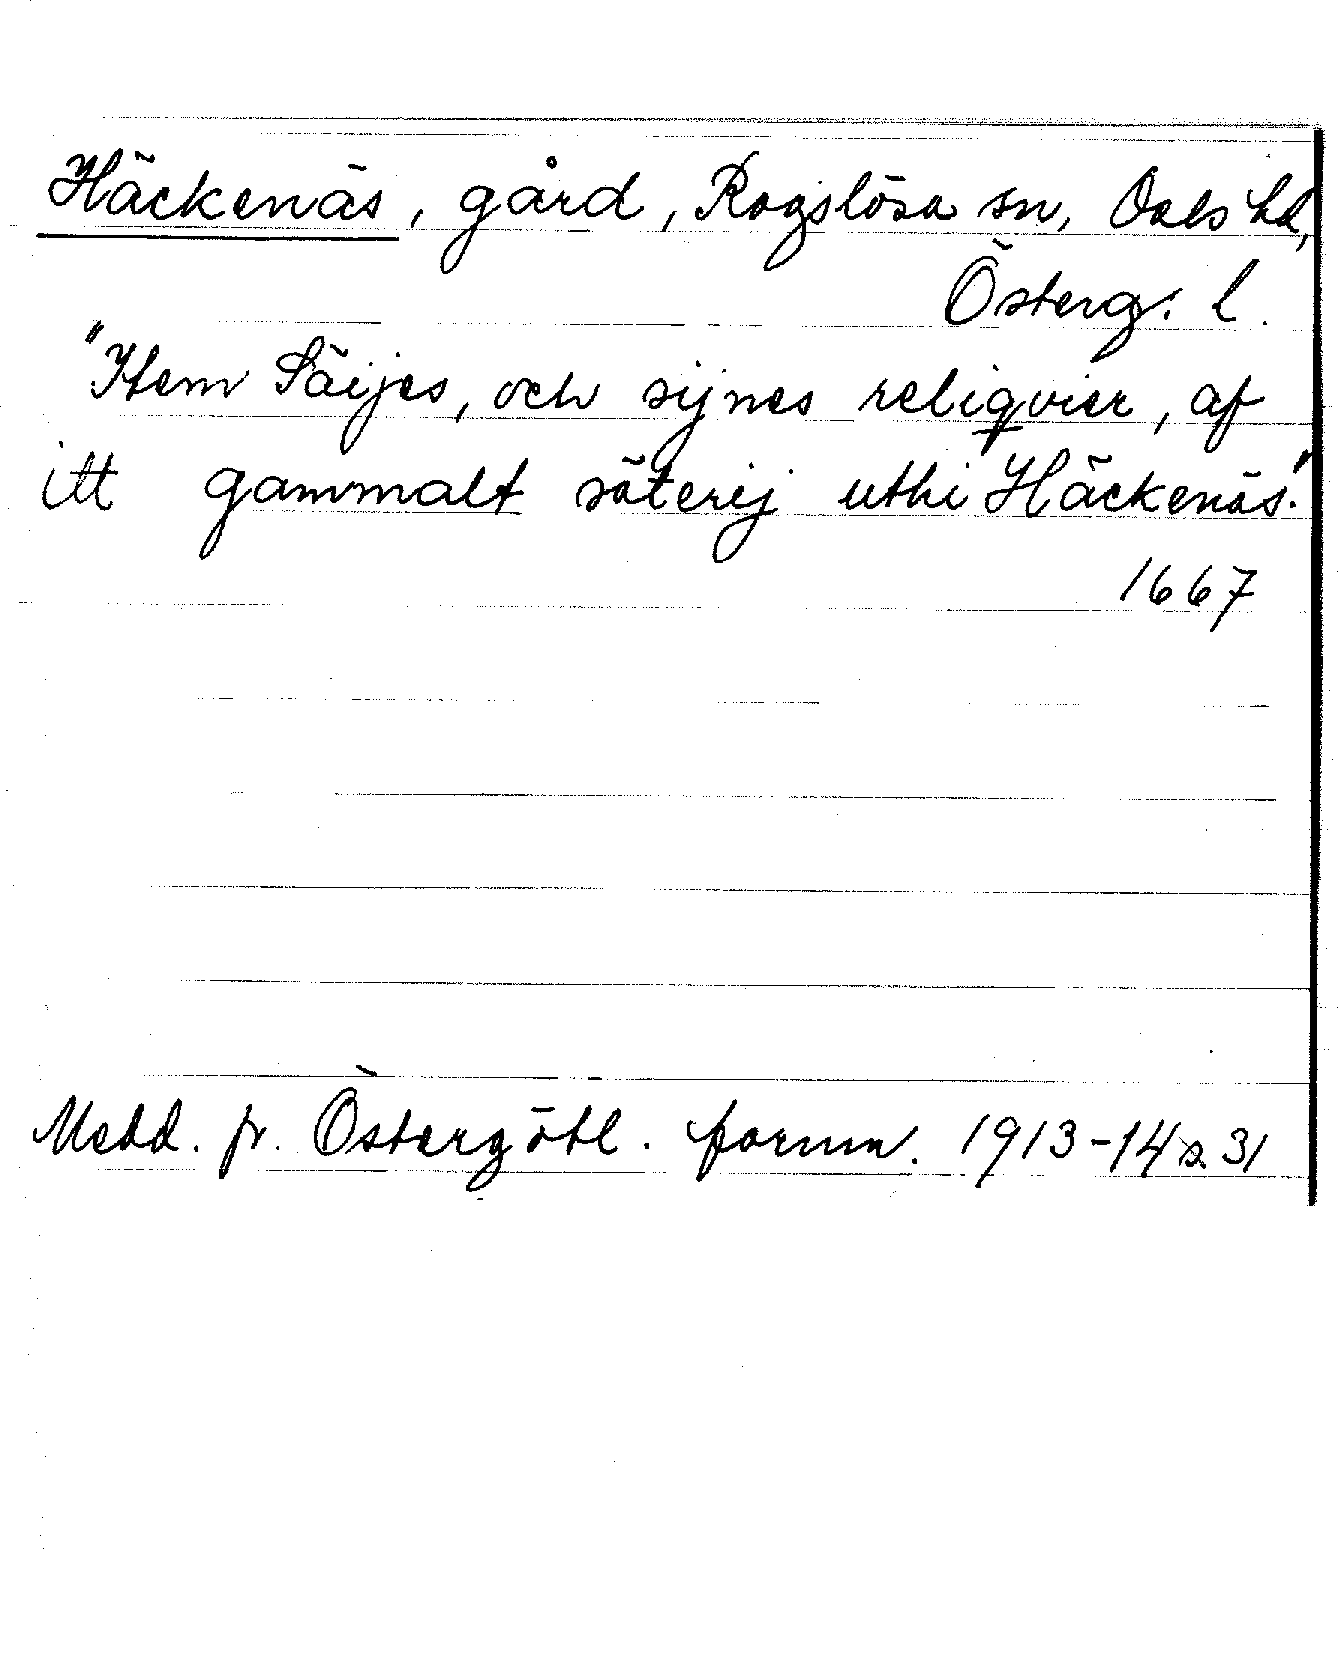 Häckenäs, gård, Rogslösa sn, Dals hd,
Österg. l.
"Item Säijes, och sijnes reliqvier, af
itt gammalt säterij uthi Häckenäs."
1667
Medd. fr. Östergötl. fornm. 1913-14 s. 31